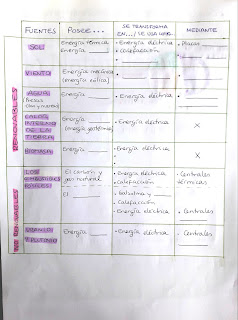 FUENTES POSEE... SE TRANSFORMA EN.../ SE USA PARA MEDIANTE
RENOVABLES
SOL Energía térmica • Energía eléctrica • Placas
Energía ____ • calefacción
VIENTO Energía mecánica • Energía eléctrica
(energía eólica)
AGUA Energía ____ • Energía eléctrica
CALOR INTERNO DE LA TIERRA Energía ____ • Energía eléctrica X
(energía geotérmica)
BIOMASA Energía ____ • Energía eléctrica X
NO RENOVABLES
LOS COMBUSTIBLES FÓSILES El carbón y gas natural • Energía eléctrica • Centrales térmicas
• calefacción
El ____ • Gasolina y
• Calefacción
• Energía eléctrica • Centrales
URANIO Y PLUTONIO Energía ____ • Energía eléctrica • Centrales